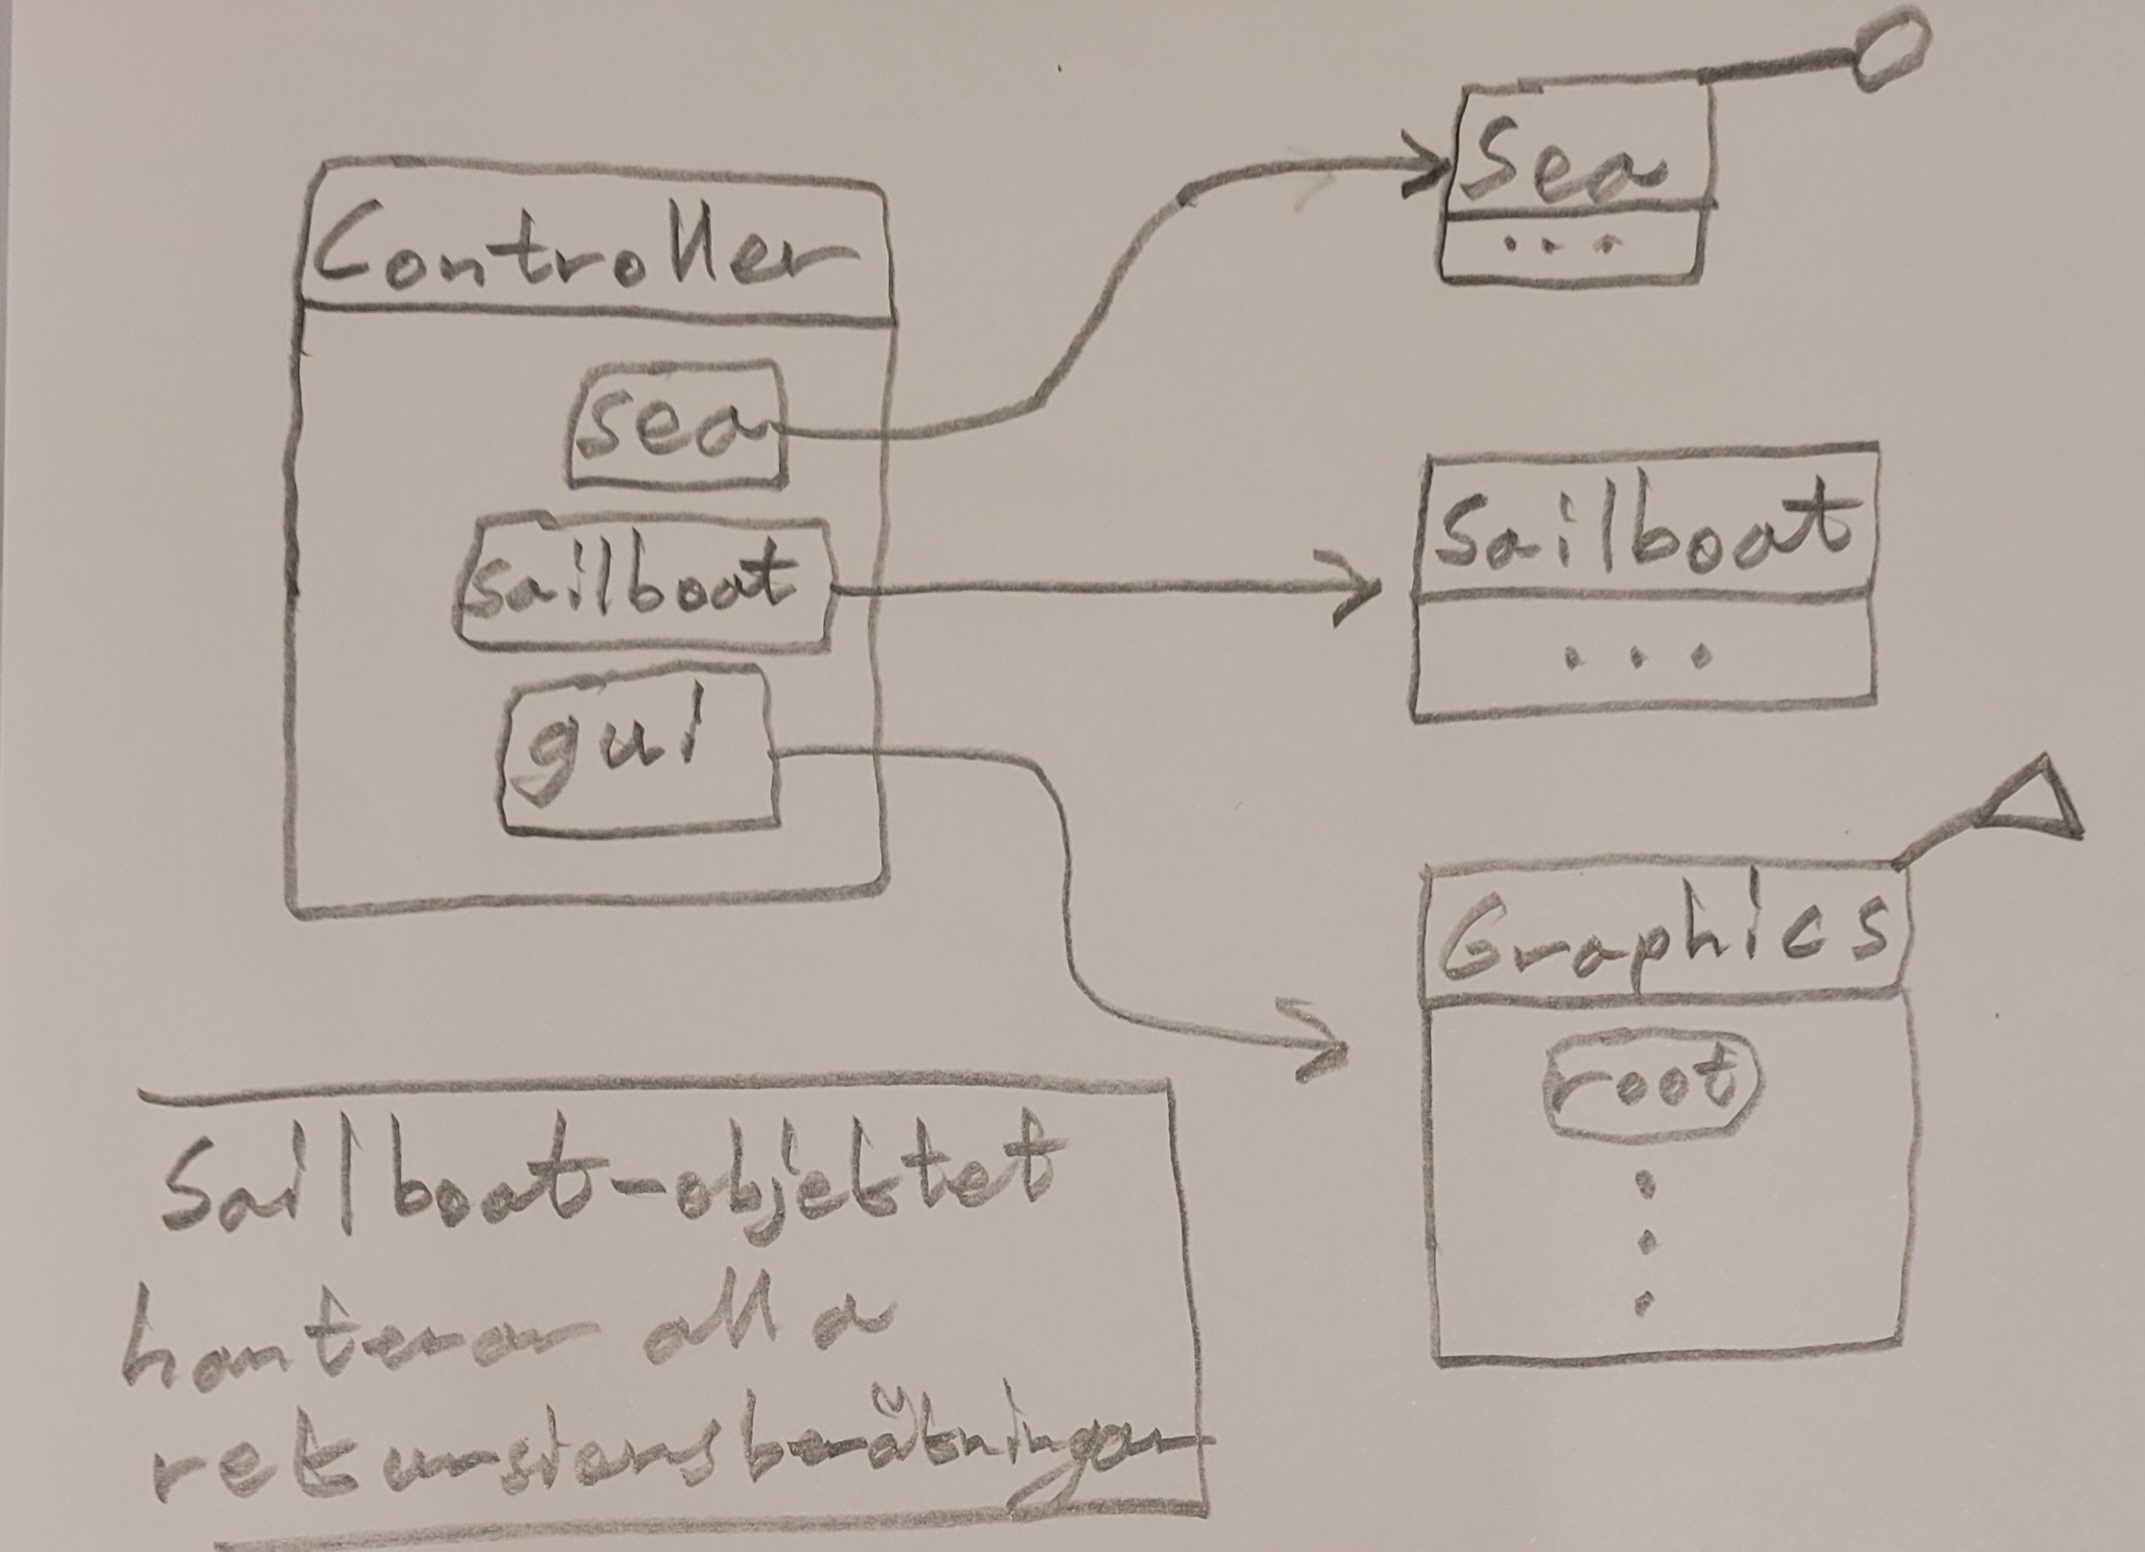 Controller
sea
sailboat
gui
Sea
...
Sailboat
...
Graphics
root
Sailboat-objektet
hanterar alla
rekursionsberäkningar